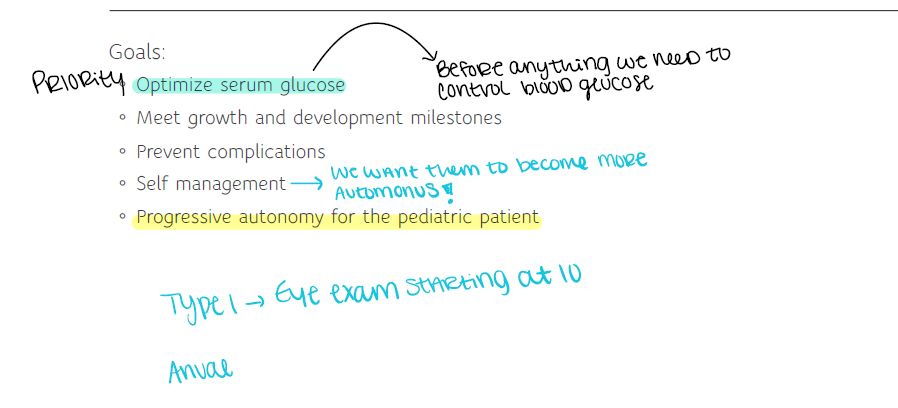 Goals:
PRIORITY
Optimize serum glucose
Before anything we need to
control blood glucose
Meet growth and development milestones
Prevent complications
Self management → We want them to become more
Automonus!
Progressive autonomy for the pediatric patient
Type 1 → Eye exam starting at 10
Anual